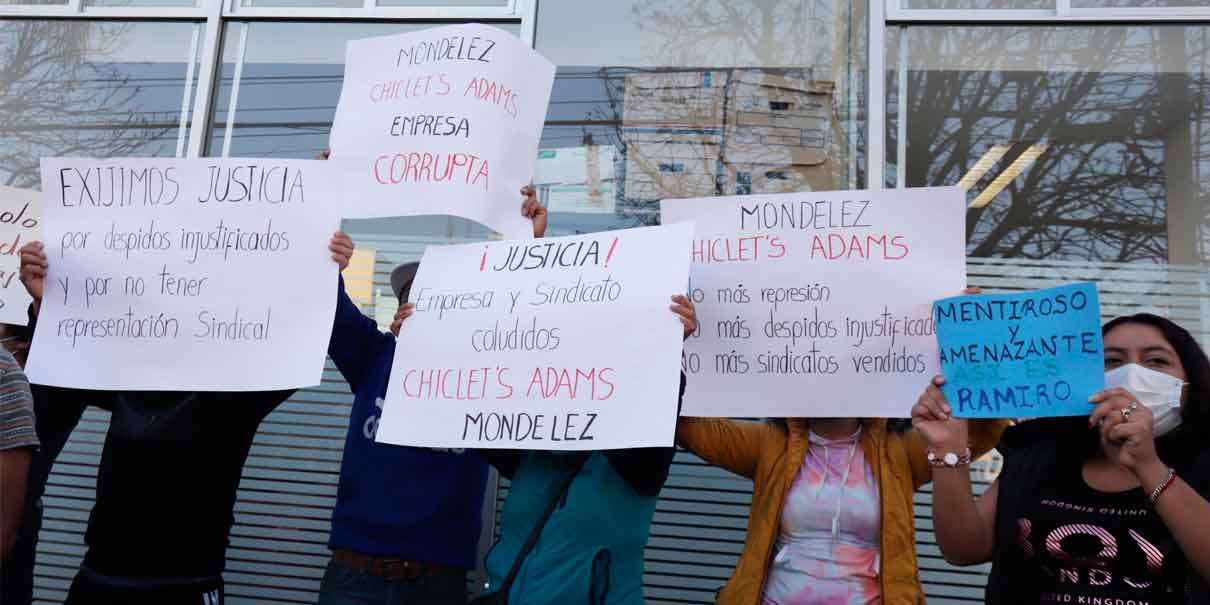 olo
EXIJIMOS JUSTICIA
por despidos injustificados
y por no tener
representación Sindical
MONDELEZ
CHICLET'S ADAMS
EMPRESA
CORRUPTA
¡JUSTICIA!
Empresa y Sindicato
coludidos
CHICLET'S ADAMS
MONDELEZ
MONDELEZ
HICLET'S ADAMS
No más represión
más despidos injustificado
No más sindicatos vendidos
MENTIROSO
y
AMENAZANTE
ASI ES
RAMIRO
UNITED KINGDOM
UNITED KINGDOM